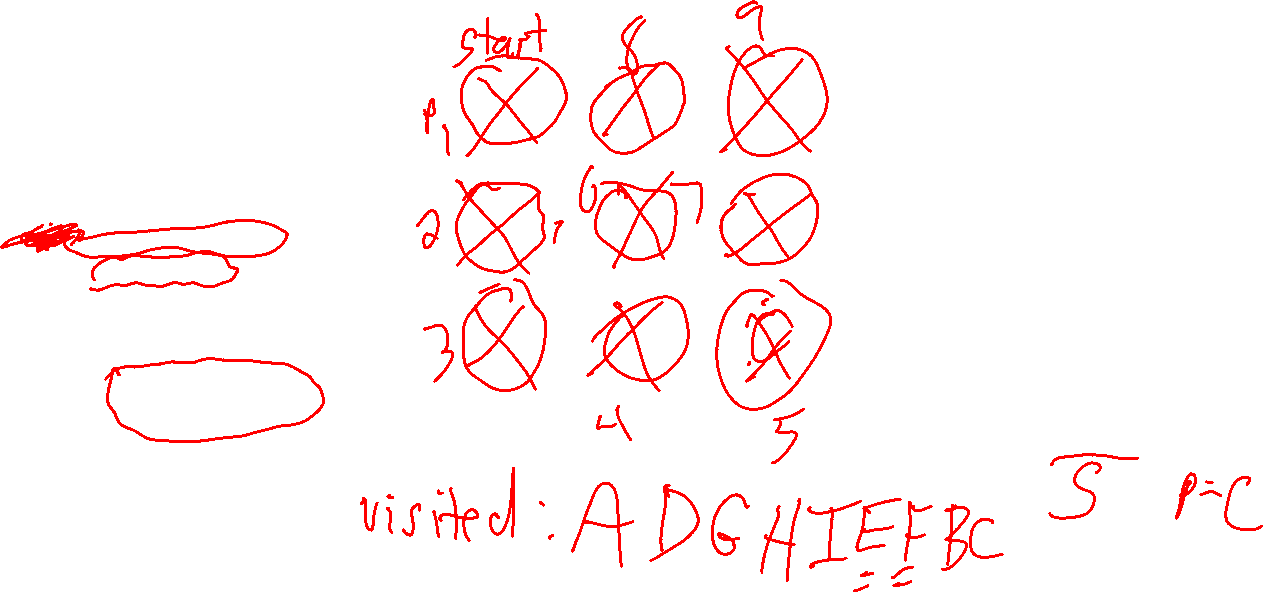 start 8 9
P 1
2 6 7
3
4 5
visited: A D G H I E F B C S P=C